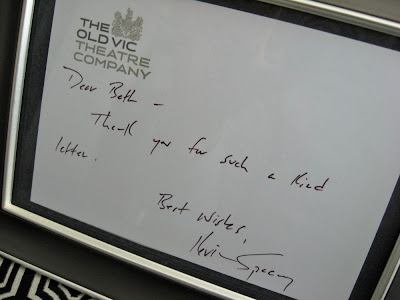 THE
OLD VIC
THEATRE
COMPANY
Dear Beth –
Thank you for such a kind
letter.
Best wishes,
Kevin Spacey